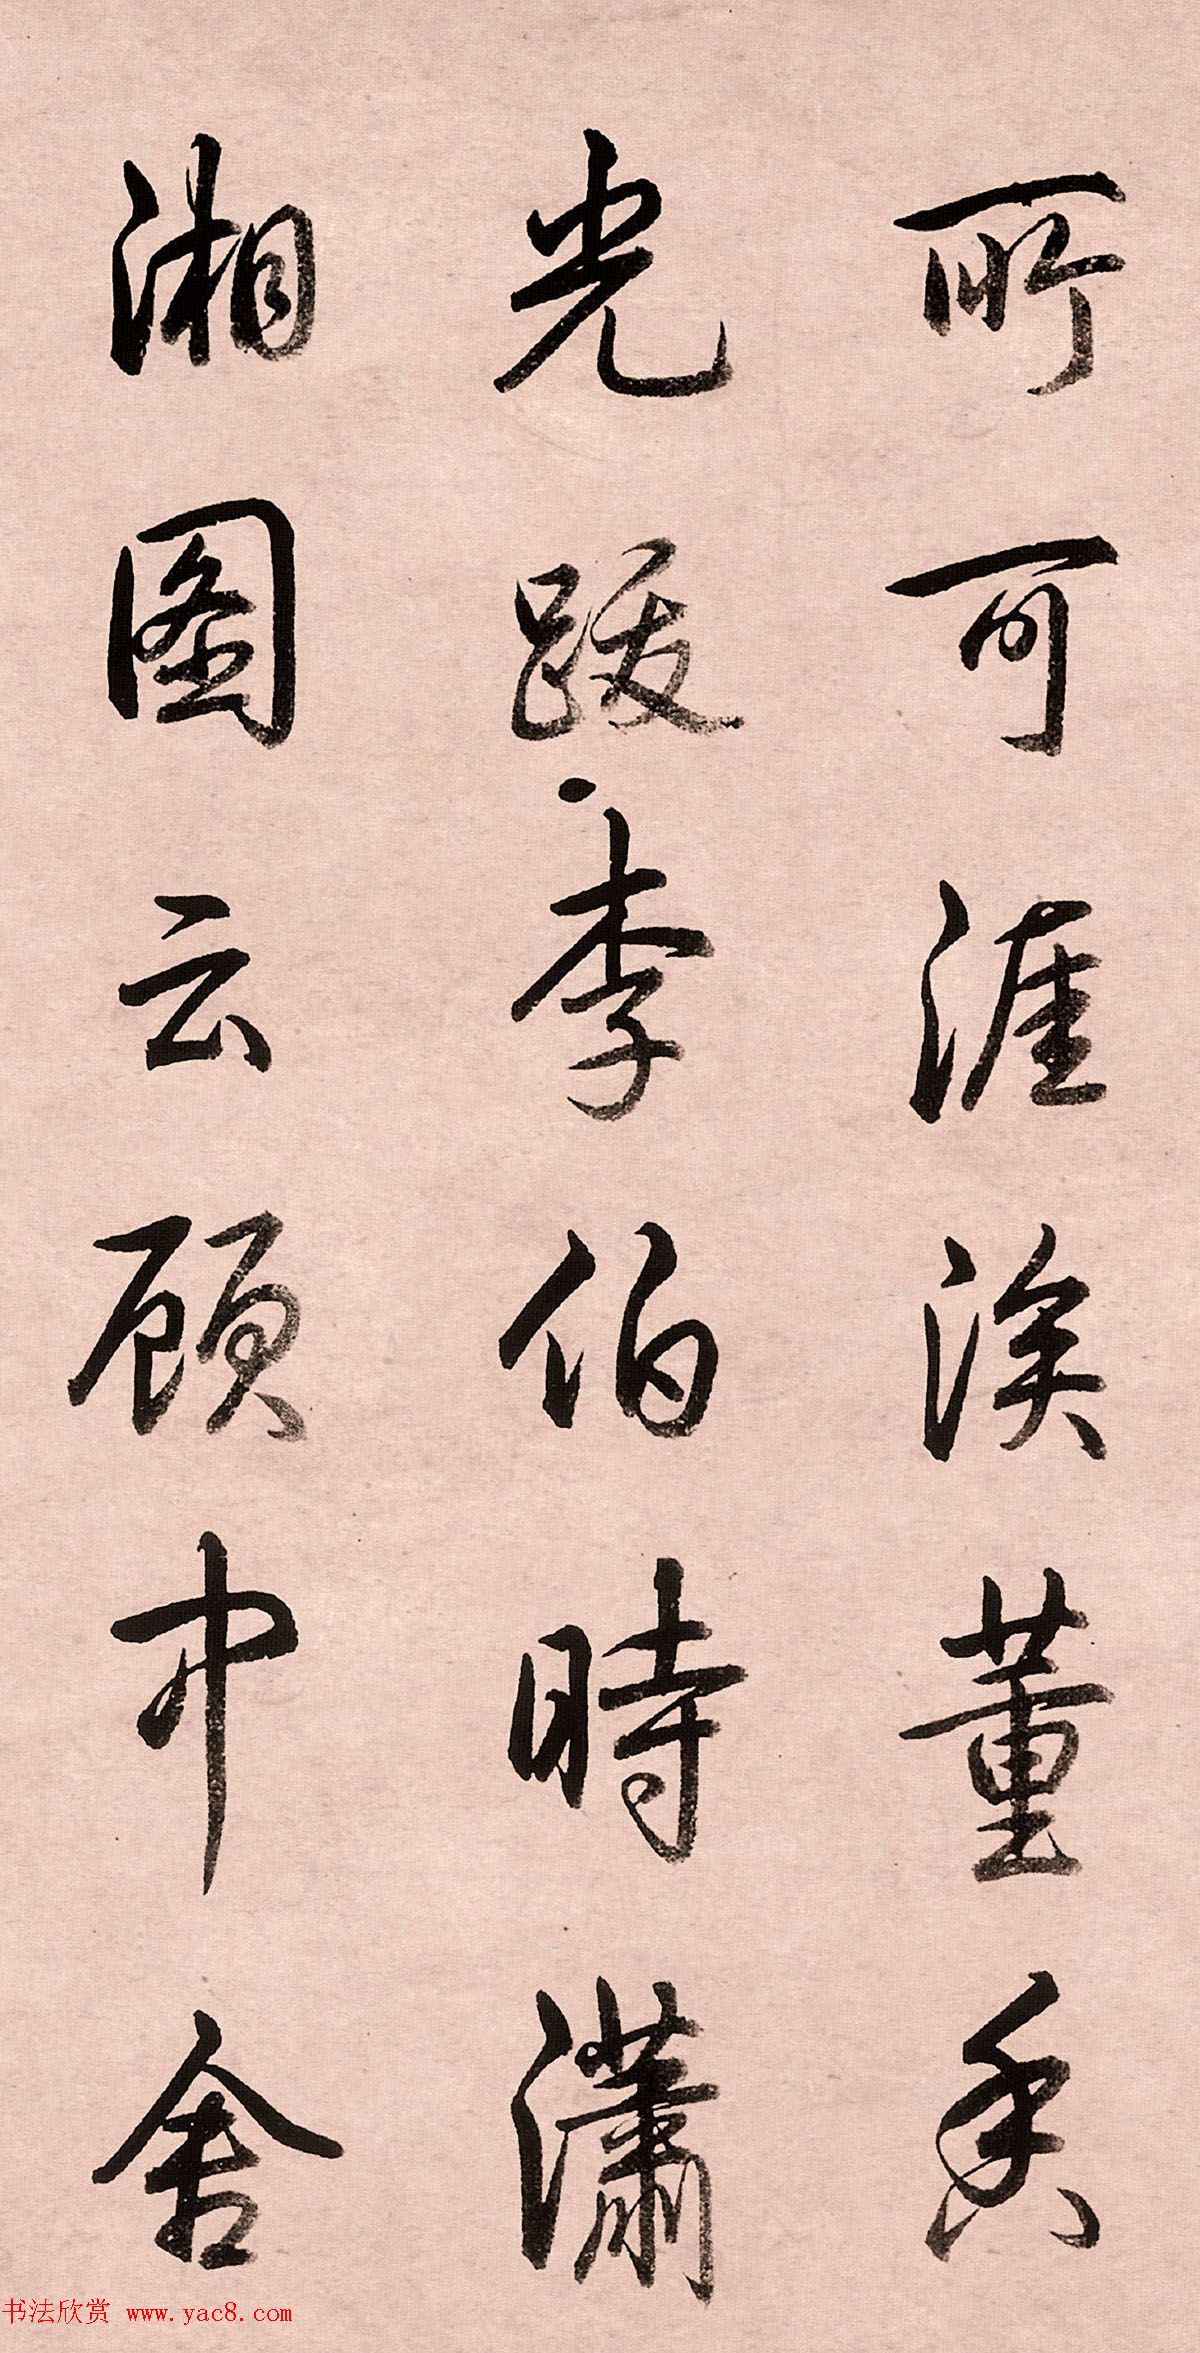 所可涯涘董香
光跋李伯時瀟
湘图云顾中舍
书法欣赏 www.yac8.com